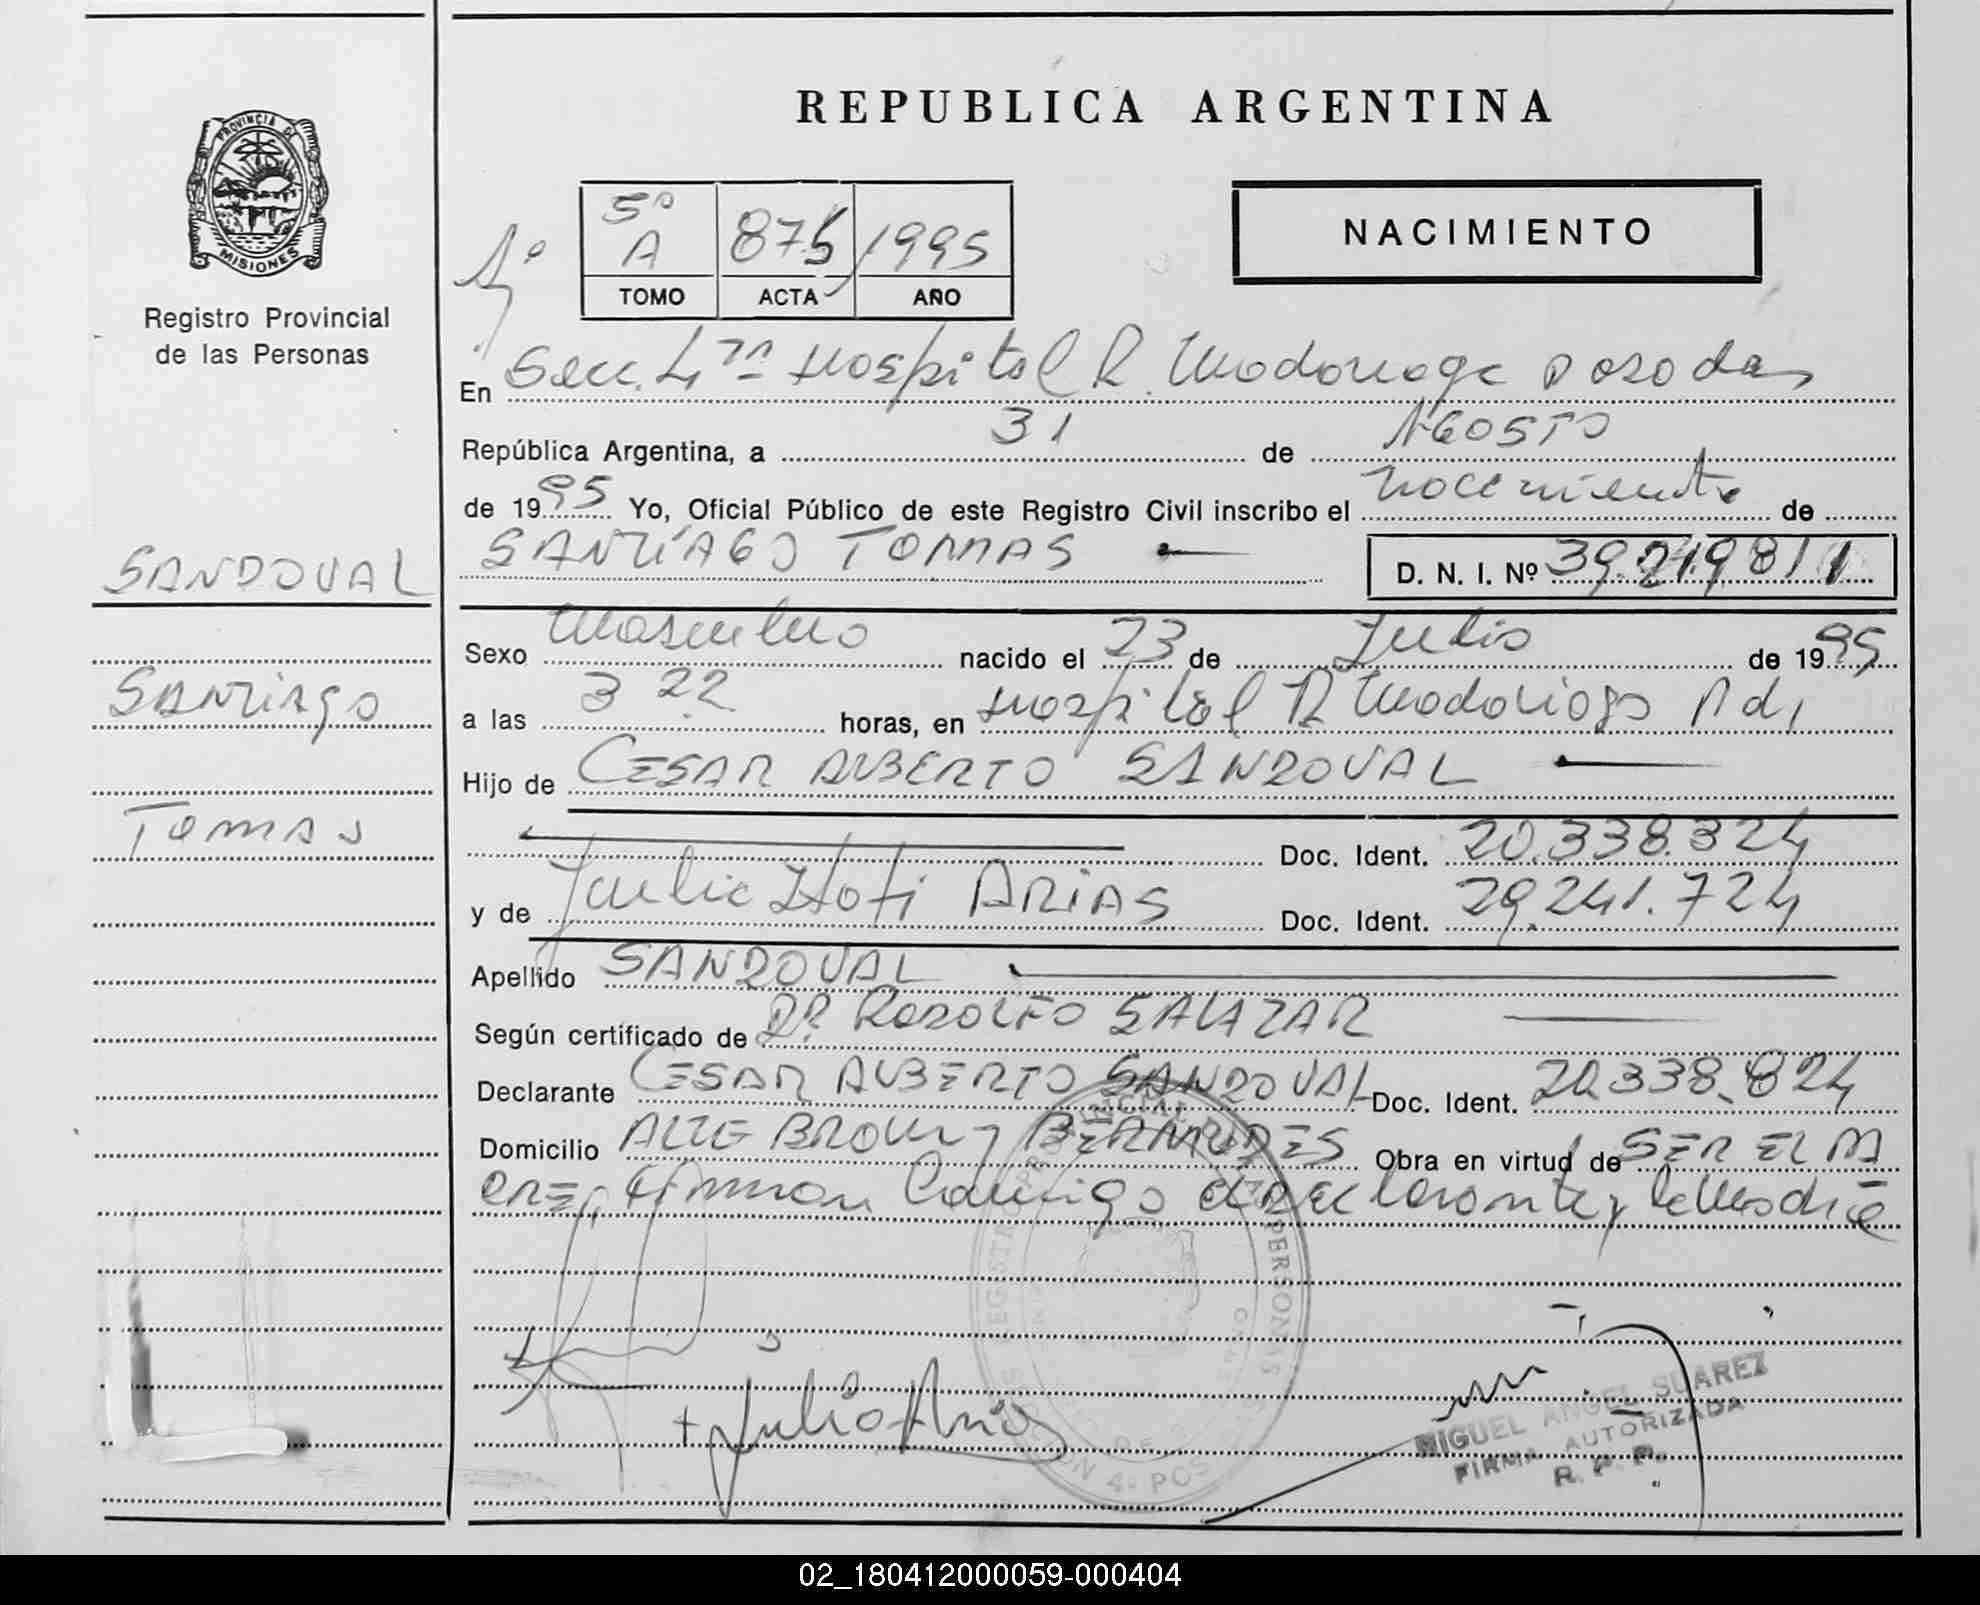 REPUBLICA ARGENTINA
PROVINCIA DE MISIONES
Registro Provincial
de las Personas
NACIMIENTO
5º A 875 1995
TOMO ACTA AÑO
En Secc. 4ta Hospital R. Madariaga Posadas
República Argentina, a 31 de AGOSTO
de 1995 Yo, Oficial Público de este Registro Civil inscribo el nacimiento de
SANTIAGO TOMAS
D. N. I. Nº 39.219.811
SANDOVAL
Santiago
Tomas
Sexo Masculino nacido el 23 de Julio de 1995
a las 3 22 horas, en Hospital R Madariaga Pdas
Hijo de CESAR ALBERTO SANDOVAL
Doc. Ident. 20.338.324
y de Julia Itatí ARIAS Doc. Ident. 29.241.724
Apellido SANDOVAL
Según certificado de Dr. RODOLFO SALAZAR
Declarante CESAR ALBERTO SANDOVAL Doc. Ident. 20.338.824
Domicilio ALTE BROWN y BERMUDES Obra en virtud de SER EL PA
DRE, Firman Conmigo declarante y la Madre
REGISTRO PROVINCIAL DE LAS PERSONAS
SECCION 4º POSADAS
Julia Arias
MIGUEL ANGEL SUAREZ
FIRMA AUTORIZADA
R. P. P.
02_180412000059-000404